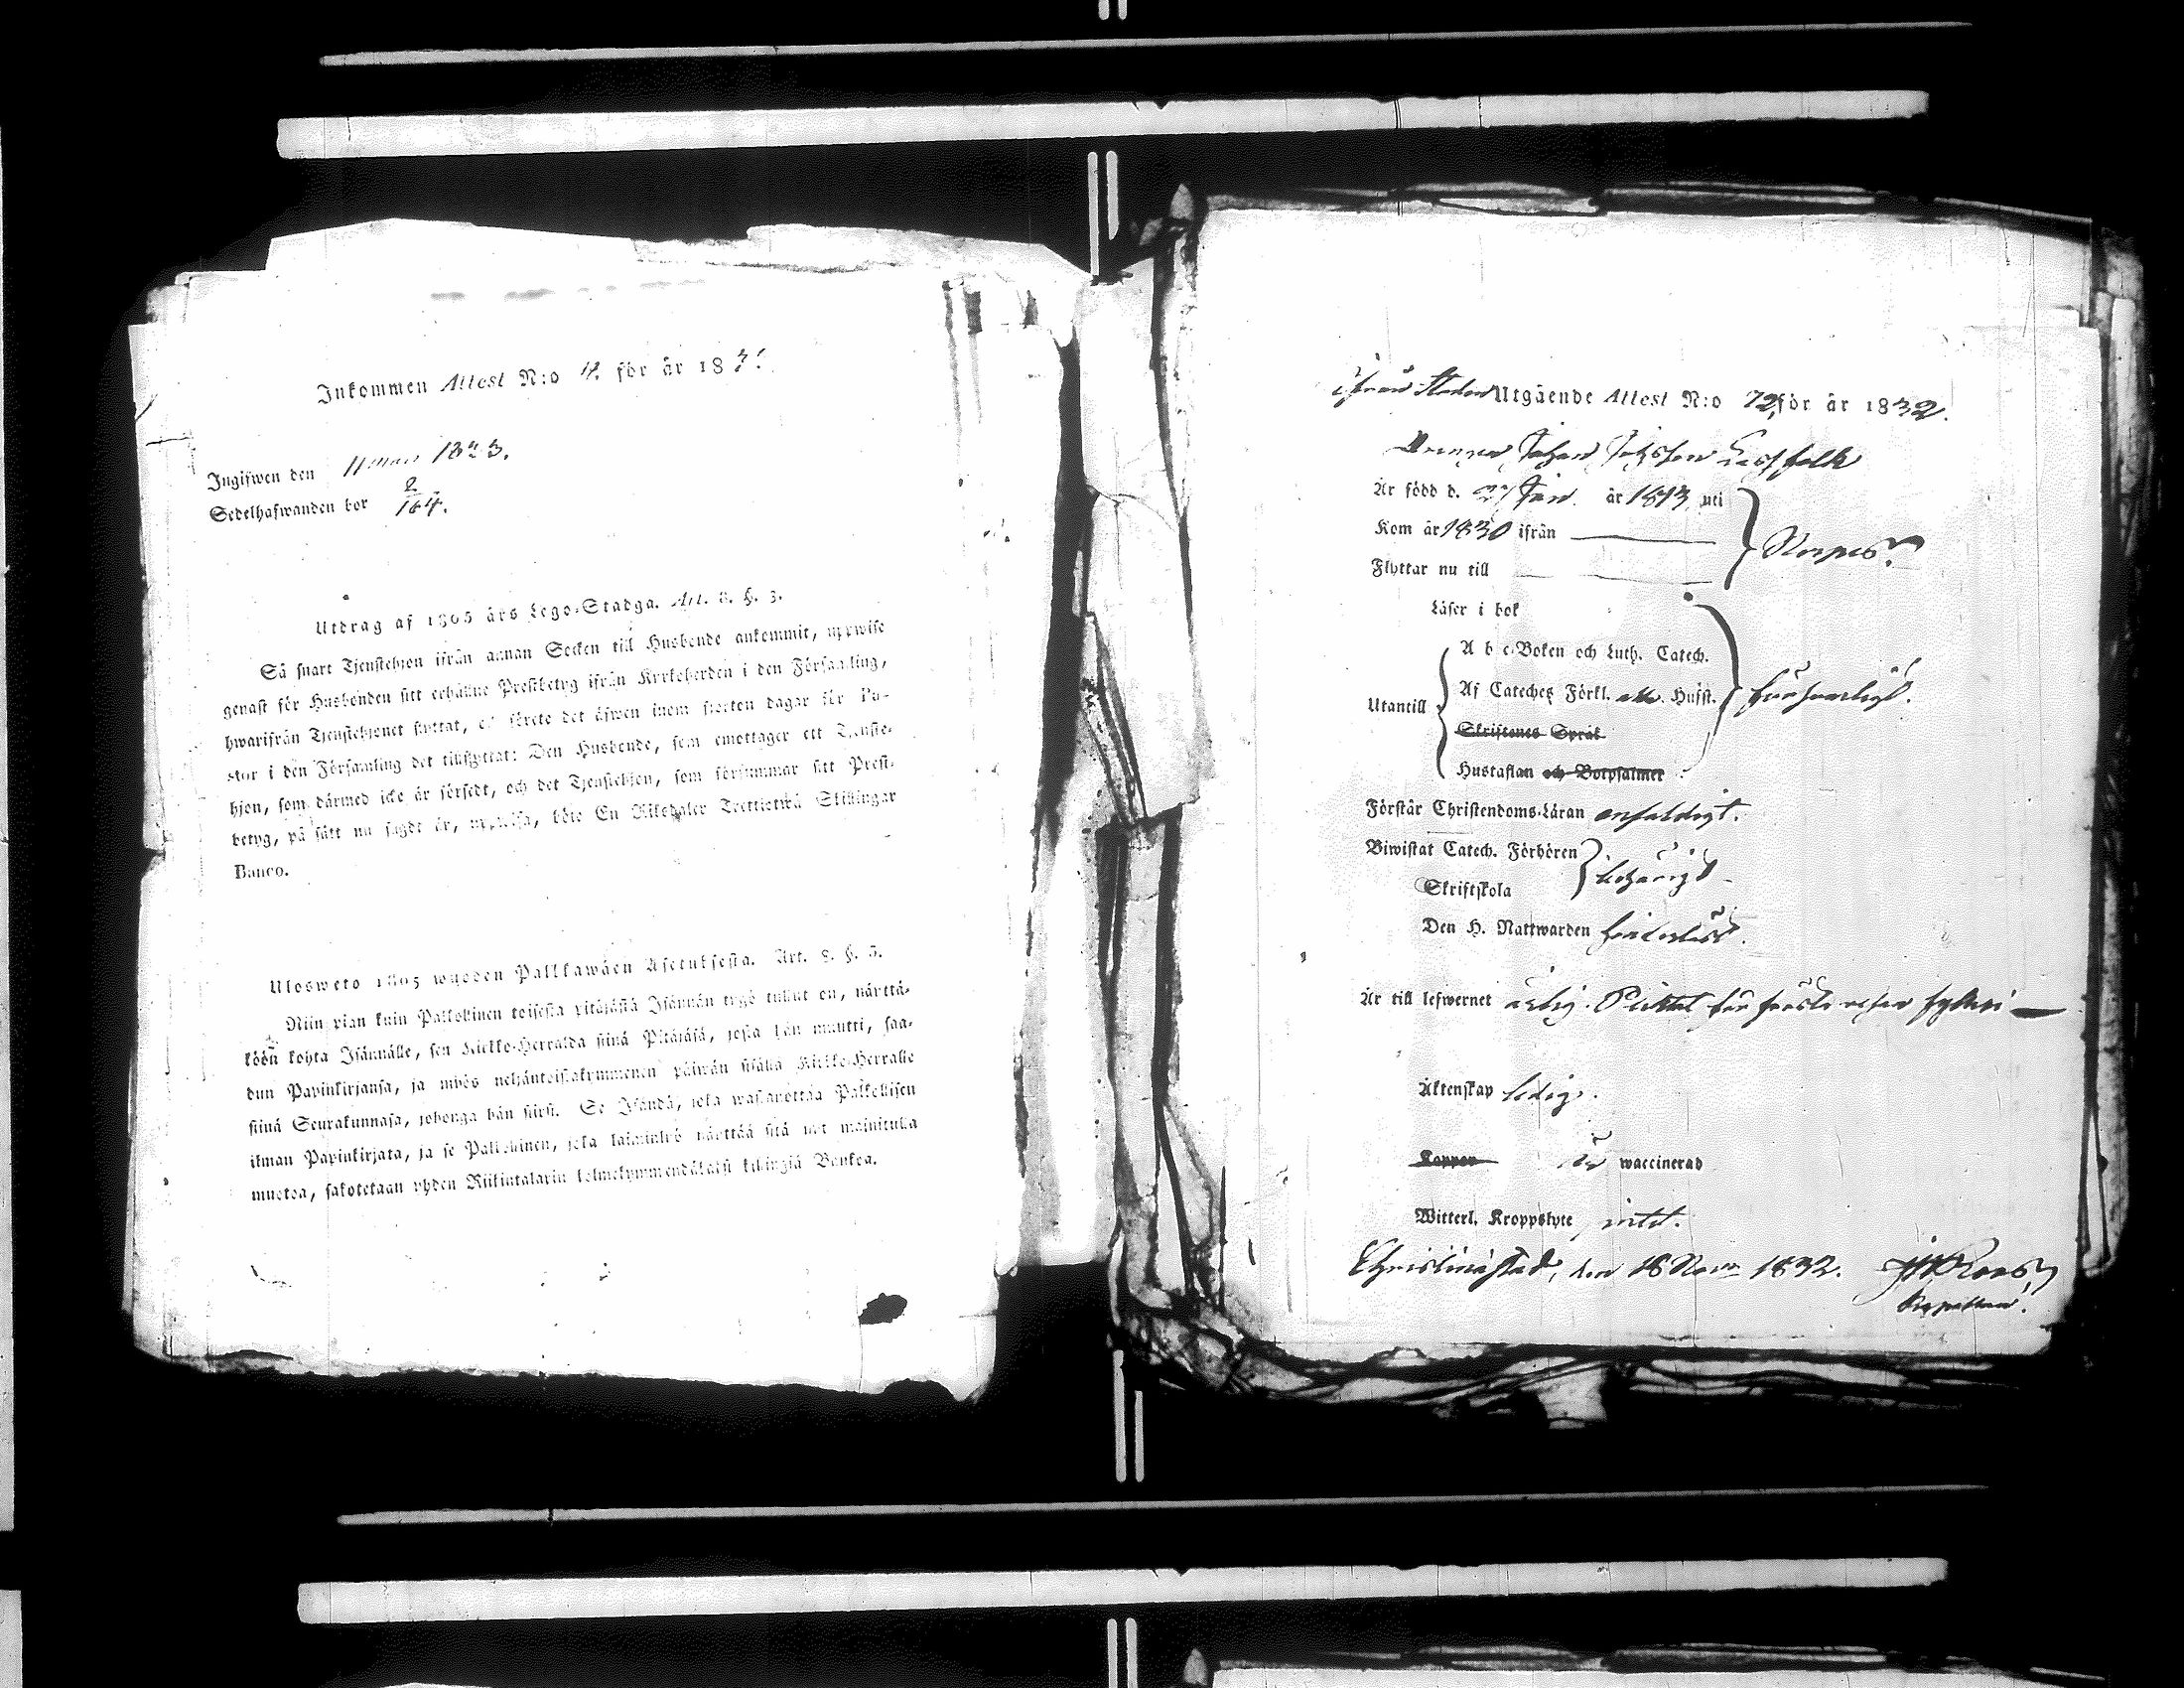 Inkommen Attest N:o 4. för år 183
Ingifwen den 11 1833.
Sedelhafwanden bor 2/164.
Utdrag af 1805 års Lego-Stadga. Art. 8. §. 3.
Så snart Tjenstehjon ifrån annan Socken till Husbonde ankommit, uppwise
genast för Husbonden sitt erhållne Prestbetyg ifrån Kyrkoherden i den Församling,
hwarifrån Tjenstehjonet flyttat, och förete det äfwen inom fjorton dagar för Pa-
stor i den Församling det tillflyttat: Den Husbonde, som emottager ett Tjenste-
hjon, som därmed icke är försedt, och det Tjenstehjon, som försummar sitt Prest-
betyg, på sätt nu sagdt är, uppwisa, böte En Riksdaler Trettiotwå Skillingar
Banco.
Ulosweto 1805 wuoden Palkkawäen Asetuksesta. Art. 8. §. 3.
Niin pian kuin Palkollinen toisesta pitäjästä Isännän tygö tullut on, näyttä-
köön kohta Isännälle, sen Kirkko-Herralda siinä Pitäjäsä, josta hän muutti, saa-
dun Papinkirjansa, ja myös neljäntoistakymmenen päiwän sisällä Kirkko-Herralle
siinä Seurakunnasa, johonga hän siirsi. Se Isändä, joka wastanottaa Palkollisen
ilman Papinkirjata, ja se Palkollinen, joka laiminlyö näyttää sitä nyt mainitulla
muotoa, sakotetaan yhden Riikintalarin kolmekymmendäkaksi killingiä Bankoa.
ifrån Staden Utgående Attest N:o 72, för år 1832.
Drengen Johan Johsson Lassfolk
Är född d. 27 Jan. år 1813 uti
Kom år 1830 ifrån
Flyttar nu till
Nerpes.
Läser i bok
A b c Boken och Luth. Catech.
Utantill Af Cateches Förkl. Husst. försvarligt.
Skriftenes Språk
Hustaflan och Botpsalmer
Förstår Christendoms-Läran enfaldigt.
Biwistat Catech. Förhören
Skriftskola behörigt
Den H. Nattwarden
Är till lefwernet ärlig. Pliktat för första resan fylleri
Äktenskap ledig.
Koppor är waccinerad
Witterl. Kroppslyte intet.
Christinestad, den 18 Nov. 1832. Roos,
Kapellan.